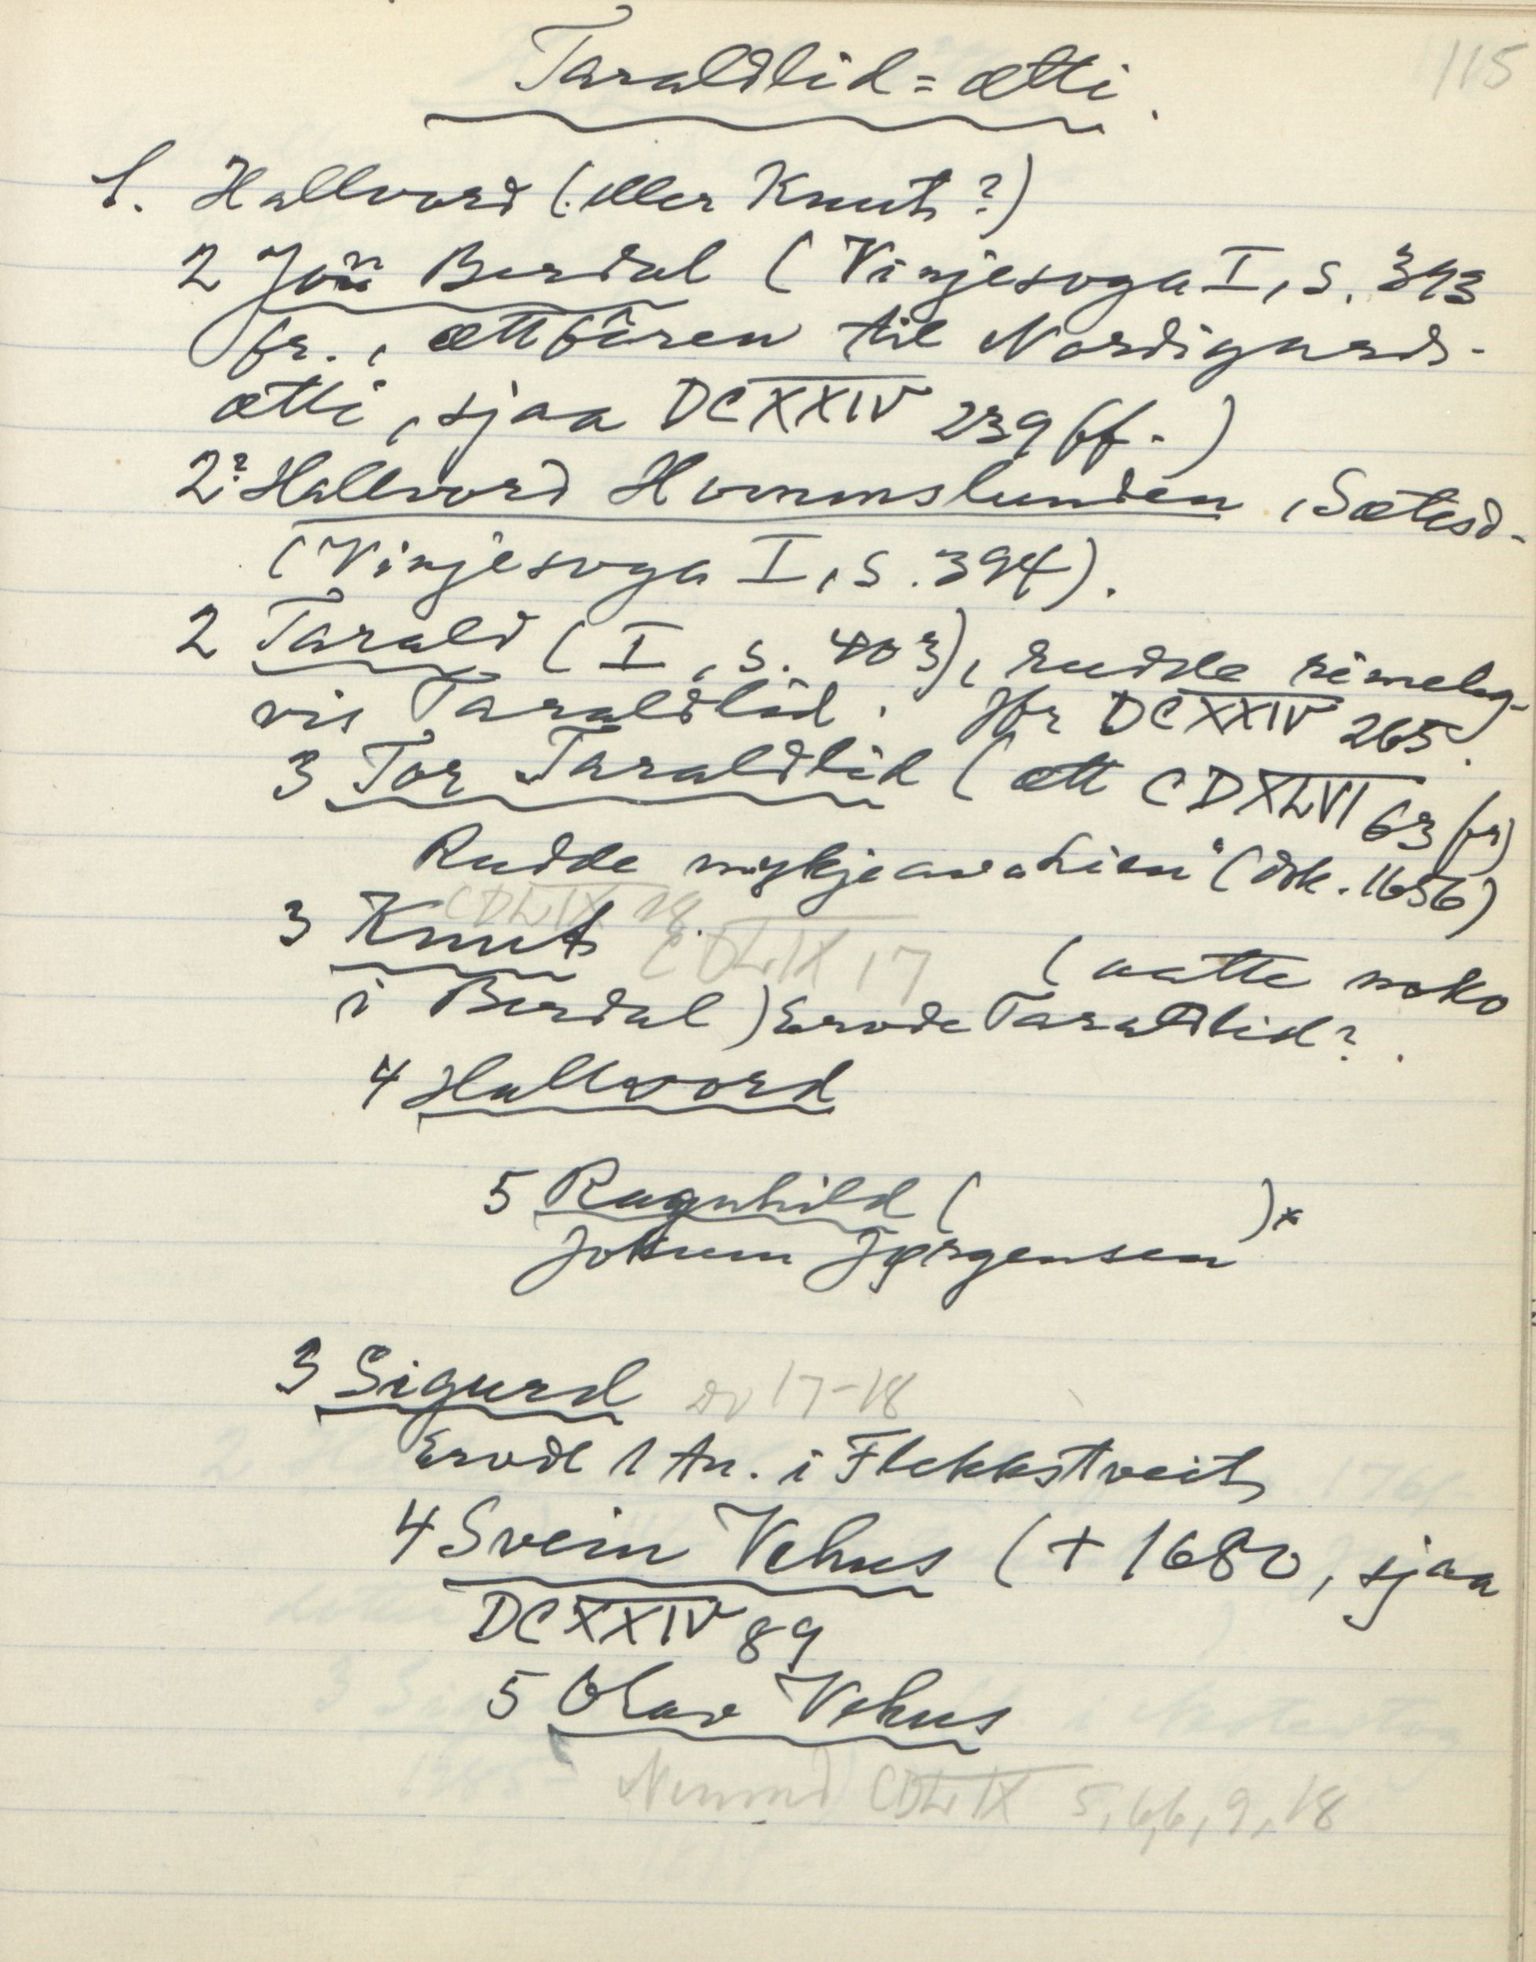 115
Taraldlid=ætti.
1. Hallvord (eller Knut?)
2 Jon Berdal (Vinjesoga I, s. 393
fr., ættfören til Nordigards-
ætti, sjaa DCXXIV 239 ff.)
2? Hallvord Hommslunden, Sætesd-
(Vinjesoga I, s. 394).
2 Tarald (I, s. 403), rudde rimeleg-
vis Taraldlid. Jfr DCXXIV 265.
3 Tor Taraldlid (ætt CDXLVI 63 fr)
Rudde (dok. 1656)
CDLIX 18.
3 Knut CDLIX 17 (aatte noko
i Berdal) Erode Taraldlid?.
4 Hallvord
5 Ragnhild ( )*
Jokum Jørgensen
3 Sigurd do 17-18
Erode 1 tn. i Flekkstveit
4 Svein Vehus (+ 1680, sjaa
DCXXIV 89
5 Olav Vehus
Nemnd CDLIX 5, 6,6, 9, 18